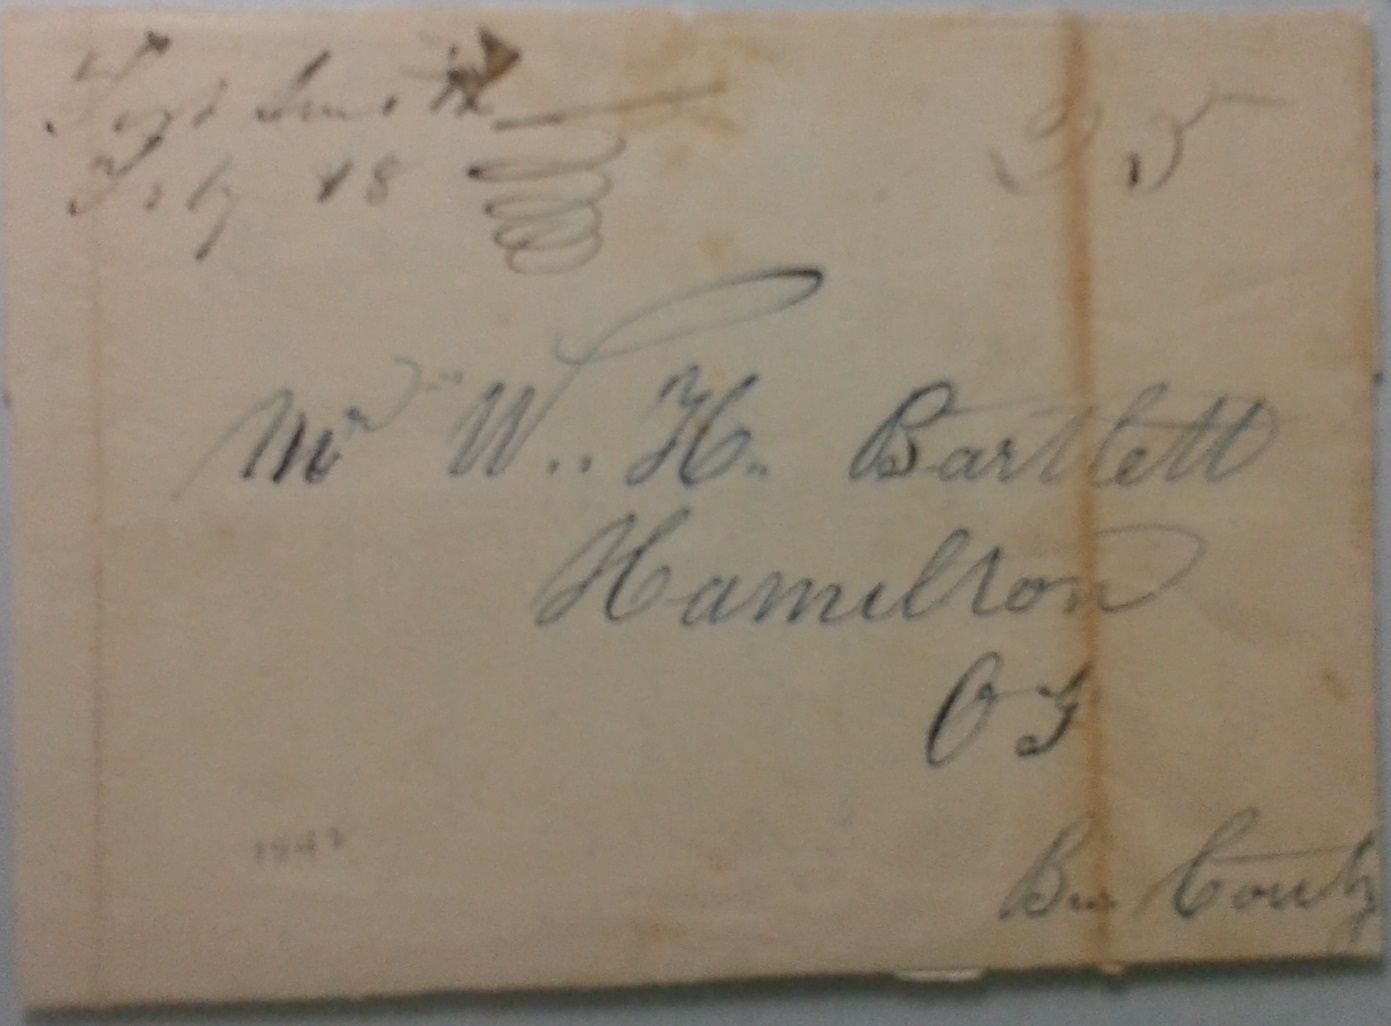 Fort Smith
Feby 18
25
Mr W.. H.. Bartlett
Hamilton
O
Couty
1842